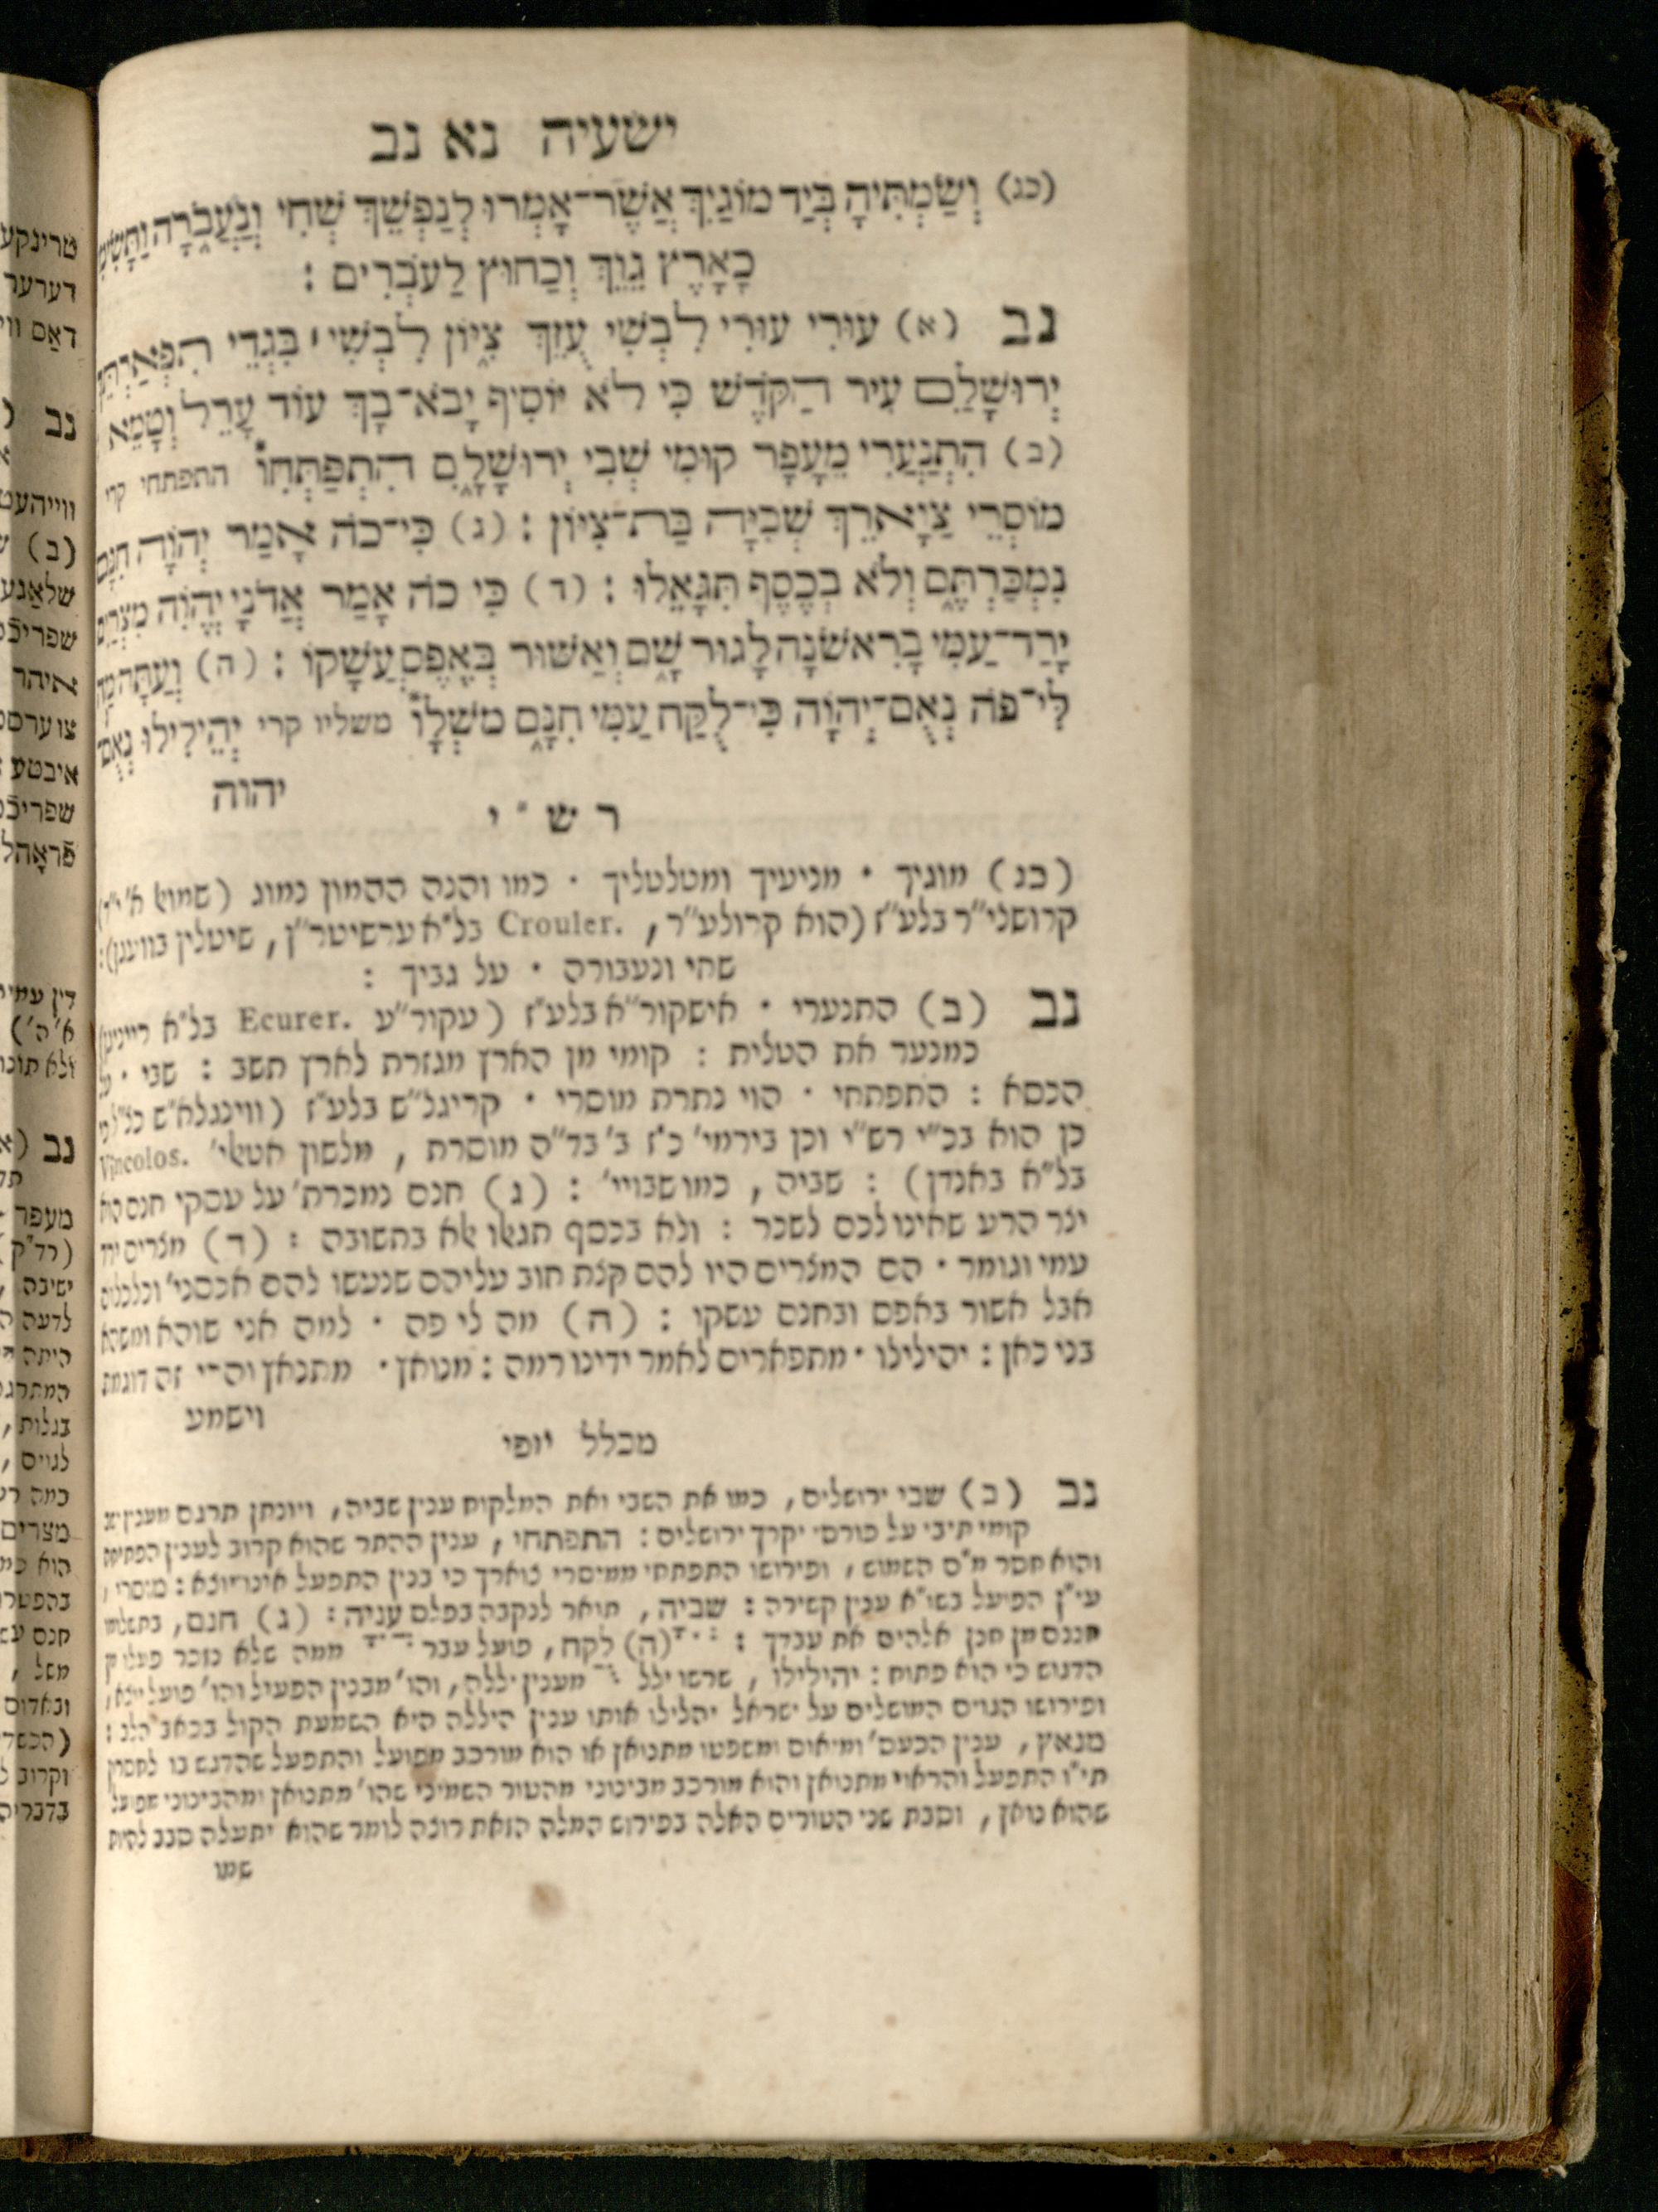 ישעיה נא נב
(כג) וְשַׂמְתִּיהָ בְּיַד מוֹגַיִךְ אֲשֶׁר־אָמְרוּ לְנַפְשֵׁךְ שְׁחִי וְנַעֲבֹרָה וַתָּשִׂימִי
כָאָרֶץ גֵּוֵךְ וְכַחוּץ לַעֹבְרִים :
נב (א) עוּרִי עוּרִי לִבְשִׁי עֻזֵּךְ צִיּוֹן לִבְשִׁי ׀ בִּגְדֵי תִפְאַרְתֵּךְ
יְרוּשָׁלִַם עִיר הַקֹּדֶשׁ כִּי לֹא יוֹסִיף יָבֹא־בָךְ עוֹד עָרֵל וְטָמֵא
(ב) הִתְנַעֲרִי מֵעָפָר קוּמִי שְׁבִי יְרוּשָׁלִָם הִתְפַּתְּחִוֹ התפתחי קרי
מוֹסְרֵי צַוָּארֵךְ שְׁבִיָּה בַּת־צִיּוֹן : (ג) כִּי־כֹה אָמַר יְהֹוָה חִנָּם
נִמְכַּרְתֶּם וְלֹא בְכֶסֶף תִּגָּאֵלוּ : (ד) כִּי כֹה אָמַר אֲדֹנָי יֱהֹוִה מִצְרַיִם
יָרַד־עַמִּי בָרִאשֹׁנָה לָגוּר שָׁם וְאַשּׁוּר בְּאֶפֶס עֲשָׁקוֹ : (ה) וְעַתָּה מַה
לִּי־פֹה נְאֻם־יְהֹוָה כִּי־לֻקַּח עַמִּי חִנָּם מֹשְׁלָו משליו קרי יְהֵילִילוּ נְאֻם־
יהוה
ר ש ״ י
(כג) מוגיך · מניעיך ומטלטליך · כמו והנה ההמון נמוג (שמואל א׳ י״ד)
קרושלי״ר בלע״ז (הוא קרולע״ר, Crouler. בל״א ערשיטר״ן, שיטלין
שחי ונעבורה · על גביך :
נב (ב) התנערי · אישקור״א בלע״ז (עקור״ע Ecurer. בל״א
כמנער את הטלית : קומי מן הארץ מגזרת לארץ תשב : שבי · על
הכסא : התפתחי · הוי נתרת מוסרי · קרינגל״ש בלע״ז
כן הוא בכ״י רש״י וכן בירמי׳ כ״ז ב׳ בד״ה מוסרת, מלשון אטאלי׳ Vincolos.
בל״א באנדן) : שביה, כמו שבויי׳ : (ג) חנם נמכרת׳ על עסקי חנם הוא
יצר הרע שאינו לכם לשכר : ולא בכסף תגאלו אלא בתשובה : (ד) מצרים ירד
עמי וגומר · הם המצרים היו להם קצת חוב עליהם שנעשו להם אכסני׳ וכלכלום
אבל אשור באפס ובחנם עשקו : (ה) מה לי פה · למה אני שוהא ומשהא
בני כאן : יהילילו · מתפארים לאמר ידינו רמה : מנואץ · מתנאץ והרי זה דוגמת
וישמע
מכלל יופי
נב (ב) שבי ירושלים, כמו את השבי ואת המלקוח ענין שביה, ויונתן תרגם מענין
קומי תיבי על כורסי יקרך ירושלים : התפתחי, ענין ההתר שהוא קרוב לענין הפתיחה
והוא חסר מ״ם השמוש, ופירושו התפתחי ממוסרי צוארך כי בנין התפעל אינו יוצא : מוסרי,
עי״ן הפועל בשו״א ענין קשירה : שביה, תואר לנקבה בפלס עניה : (ג) חנם,
אלהים את עבדך : (ה) לקח, פועל עבר ממה שלא נזכר פועלו
הדגוש כי הוא פתוח : יהילילו, שרשו ילל מענין יללה, והו׳ מבנין הפעיל והו׳ פועל יוצא,
ופירושו הגוים המושלים על ישראל יהלילו אותו ענין היללה היא השמעת הקול בכאב הלב :
מנאץ, ענין הכעס׳ ומיאוס ומשפטו מתנואץ או הוא מורכב מפועל והתפעל שהדגש בו לחסרון
תי״ו התפעל והראוי מתנואץ והוא מורכב מבינוני מהטור השמיני שהו׳ מתנואץ ומהבינוני מפועל
שהוא נואץ, וסבת שני הטורים האלה בפירוש המלה הזאת רוצה לומר שהוא יתעלה סבב להיות
שמו